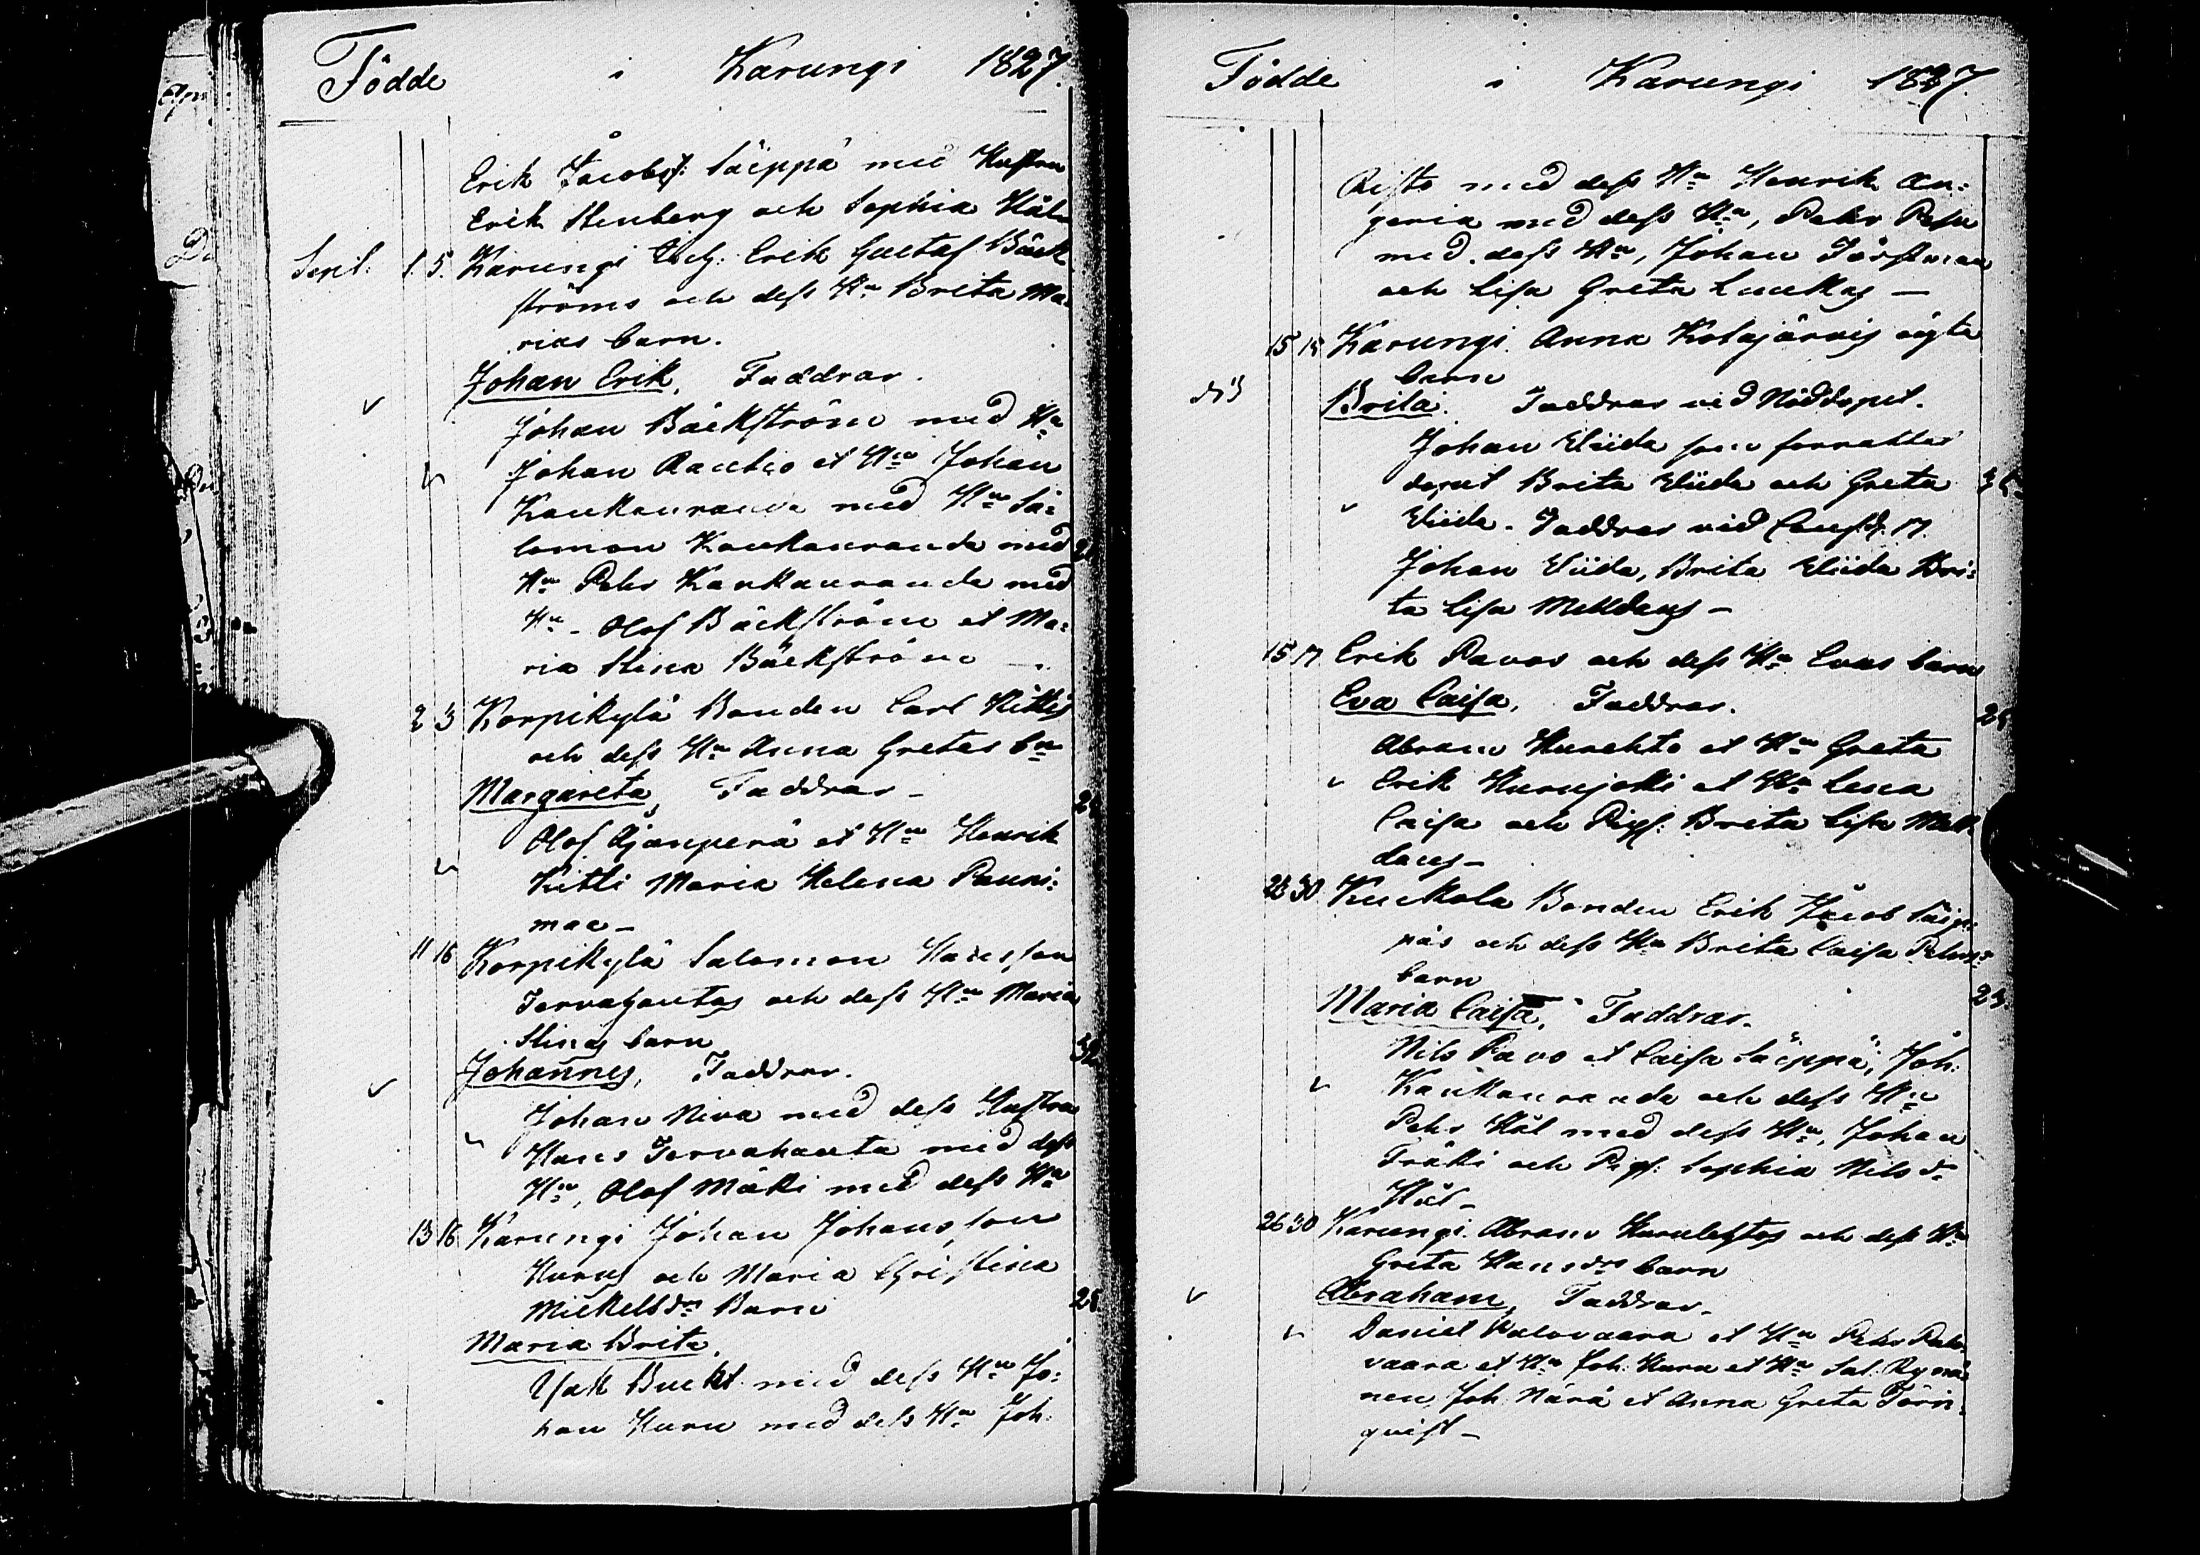 Födde i Karungi 1827.
Erik Jacobss: Säippä med Hustru
Erik Stenberg och Sophia Häl
Sept: 1. 5. Karungi Erik Gustaf Bäck
ströms och dess Hu Brita Ma
rias barn.
Johan Erik, Faddrar.
Johan Bäckström med Hu
Johan Rautio et Hu Johan
Kaukauranda med Hu Sa:
lomon Kaukauranda med 21
Hu Pehr Kaukauranda med
Hu - Olof Bäckström et Ma:
ria Stina Bäckström -
2 3 Korpikylä Bonden Carl Kittis
och dess Hu Anna Gretas bn
Margareta, Faddrar -
Olof Ajanperä et Hu Henrik
Kitti Maria Helena Pauni:
maa -
11 16 Korpikylä Salomon Hansson
Tervahautas och dess Hu Maria
Stinas barn 32
Johannes, Faddrar.
Johan Niva med dess Hustru
Hans Tervahauta med dess
Hu, Olof Mäki med dess Hu
13 16 Karungi Johan Johansson
Hurus och Maria Christina
Mickelsdr Barn 28
Maria Brita.
Isak Buckt med dess Hu Jo:
han Huru med dess Hu Joh:
Födde i Karungi 1827.
Risto med dess Hu Henrik An:
geria med dess Hu, Pehr Pesu
med dess Hu, Johan Förstman
och Lisa Greta Luukas -
15 15 Karungi. Anna Kolajärvis oägta
barn
Brita. Faddrar vid Nöddopet.
Johan Viida som förrättat
dopet Brita Viida och Greta
Viida. Faddrar vid
Johan Viida, Brita Viida Bri:
ta Lisa Mukkdaus -
15 17 Erik Pavos och dess Hu Evas barn
Eva Caisa, Faddrar.
Abram Hurulehto et Hu Greta
Erik Hurujoki et Hu Lena
Caisa och Pigs: Brita Lisa
daus -
23 30 Kuckola Bonden Erik Jacob Säip:
päs och dess Hu Brita Caisa Pehrs:
barn
Maria Caisa, Faddrar.
Nils Pavo et Caisa Säippä, Joh:
Kaukauranda och dess Hu
Pehr Häl med dess Hu, Johan
Träkki och Pigs: Sophia Nilsdr
Häl -
26 30 Karungi. Abram Hurulehtos och dess Hu
Greta Hansdrs barn
Abraham, Faddrar -
Daniel Palovaara et Hu Pehr Palo
vaara et Hu Joh: Huru et Hu Sal: Rynä
nen Joh: Närä et Anna Greta Törn:
quist -